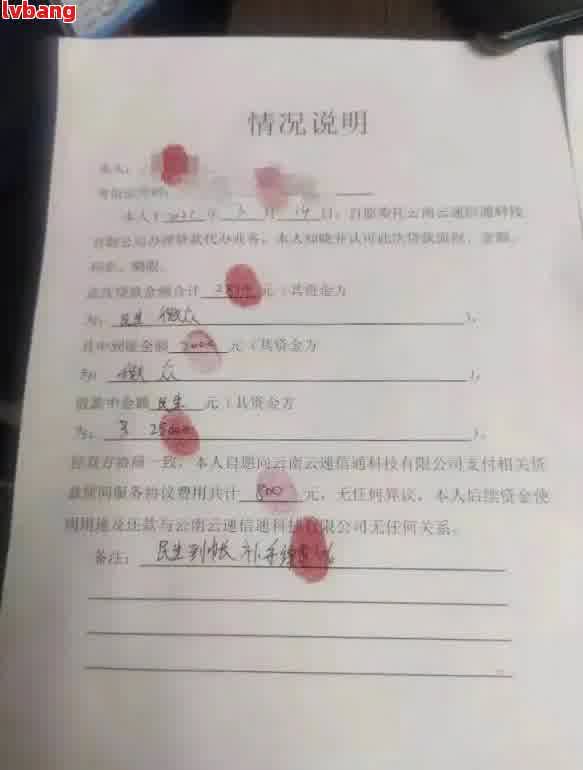 lvbang
情况说明
本人：
身份证号码：
本人于 年 月 19 日，自愿委托云南云速信通科技
有限公司办理贷款代办业务，本人知晓并认可此次贷款流程、金额、
利息、期限。
此次贷款金额合计 元（其资金方
为：民生 微众 ），
其中到账金额 2000 元（其资金方
为：微众 ），
放款中金额 民生 元（其资金方
为： ），
经双方协商一致，本人自愿向云南云速信通科技有限公司支付相关贷
款咨询服务协议费用共计 800 元，无任何异议，本人后续资金使
用用途及还款与云南云速信通科技有限公司无任何关系。
备注：民生到帐 补手续